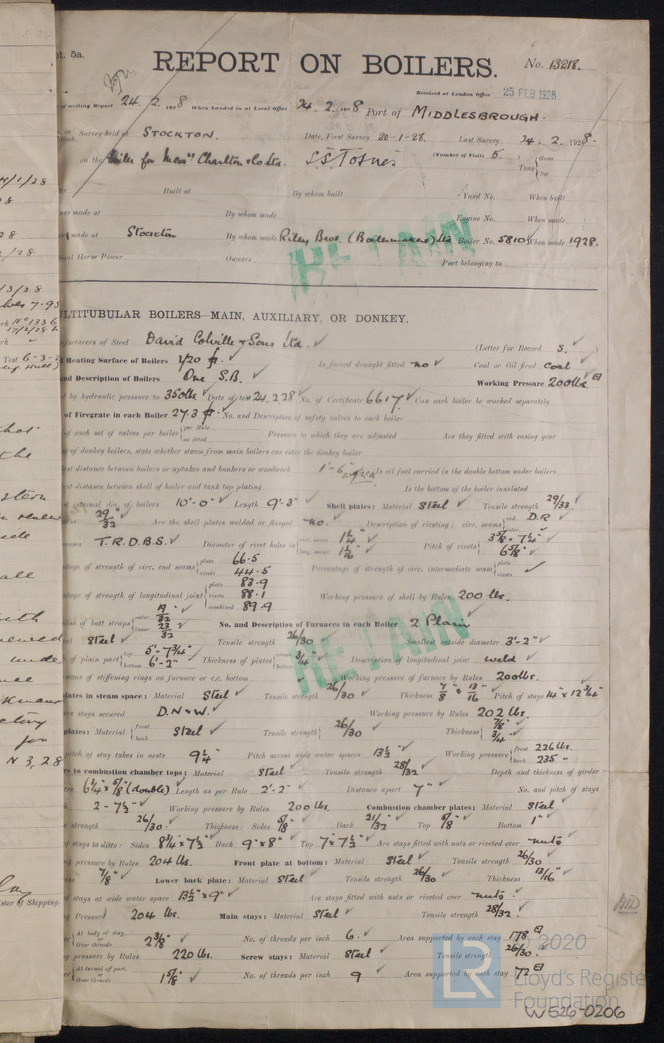 pt. 5a.
REPORT ON BOILERS.
No. 13218.
Received at London Office 25 FEB 1928
of writing Report 24. 2. 1928 When handed in at Local Office 24. 2. 1928 Port of MIDDLESBROUGH.
Survey held at STOCKTON. Date, First Survey 20-1-28. Last Survey 24. 2. 1928.
on the Boiler for Messrs Charlton & Co Ltd. (Number of Visits 5.) Gross
Tons
Net
Built at By whom built Yard No. When built
made at By whom made Engine No. When made
made at Stockton By whom made Riley Bros. (Boilermakers) Ltd Boiler No. 5810 When made 1928.
Horse Power Owners Port belonging to
RETAIN
MULTITUBULAR BOILERS—MAIN, AUXILIARY, OR DONKEY.
facturers of Steel David Colville & Sons Ltd. (Letter for Record S.)
Heating Surface of Boilers Is forced draught fitted no Coal or Oil fired Coal
nd Description of Boilers One S.B. Working Pressure 200 lbs.
d by hydraulic pressure to 350 lbs Date of test 24.2.28 No. of Certificate 6617 Can each boiler be worked separately
of Firegrate in each Boiler 27.3 No. and Description of safety valves to each boiler
of each set of valves per boiler Pressure to which they are adjusted Are they fitted with easing gear
of donkey boilers, state whether steam from main boilers can enter the donkey boiler
st distance between boilers or uptakes and bunkers or woodwork 1'-6" Is oil fuel carried in the double bottom under boilers
st distance between shell of boiler and tank top plating Is the bottom of the boiler insulated
internal dia. of boilers 10'-0" Length 9'-3" Shell plates: Material Steel Tensile strength 29/33
29/32 Are the shell plates welded or flanged no. Description of riveting: circ. seams D.R
seams T.R.D.B.S. Diameter of rivet holes in 1 1/4 1 1/16 Pitch of rivets 3 5/8 7 1/4" 6 5/8"
tage of strength of circ. end seams plate 66.5 rivets 44.5 Percentage of strength of circ. intermediate seam plate rivets
tage of strength of longitudinal joint plate 83.9 rivets 88.1 combined 89.9 Working pressure of shell by Rules 200 lbs.
ss of butt straps 19/32 23/32 No. and Description of Furnaces in each Boiler 2 Plain
Steel Tensile strength 26/30 Smallest outside diameter 3'-2"
of plain part top 5'-7 3/4" bottom 6'-2" Thickness of plates 3/4" Description of longitudinal joint weld
ions of stiffening rings on furnace or c.c. bottom Working pressure of furnace by Rules 200 lbs.
plates in steam space: Material Steel Tensile strength 26/30 Thickness 7/8 & 13/16 Pitch of stays 14" x 12 3/4"
re stays secured D.N & W. Working pressure by Rules 202 lbs.
plates: Material front back Steel Tensile strength 26/30 Thickness 7/8" 3/4"
pitch of stay tubes in nests 9 1/4" Pitch across wide water spaces 13 1/2" Working pressure front 226 lbs. back 235 "
rs to combustion chamber tops: Material Steel Tensile strength 28/32 Depth and thickness of girder
6 3/4 x 5/8 (double) Length as per Rule 2'-2" Distance apart 7" No. and pitch of stays
2 - 7 1/2" Working pressure by Rules 200 lbs. Combustion chamber plates: Material Steel
strength 26/30. Thickness: Sides 5/8" Back 21/32" Top 5/8" Bottom 1"
of stays to ditto: Sides 8 3/4" x 7 1/2" Back 9" x 8" Top 7" x 7 1/2" Are stays fitted with nuts or riveted over nuts
g pressure by Rules 204 lbs. Front plate at bottom: Material Steel Tensile strength 26/30
7/8" Lower back plate: Material Steel Tensile strength 26/30 Thickness 13/16"
of stays at wide water space 13 1/2" x 9" Are stays fitted with nuts or riveted over nuts.
g Pressure 204 lbs. Main stays: Material Steel Tensile strength 28/32.
At body of stay, or Over threads 2 3/8" No. of threads per inch 6. Area supported by each stay 178
g pressure by Rules 220 lbs. Screw stays: Material Steel Tensile strength 26/30.
At turned off part, or Over threads 1 5/8" No. of threads per inch 9 Area supported by each stay 72
RETAIN
© 2020
LR
Lloyd's Register
Foundation
W526-0206